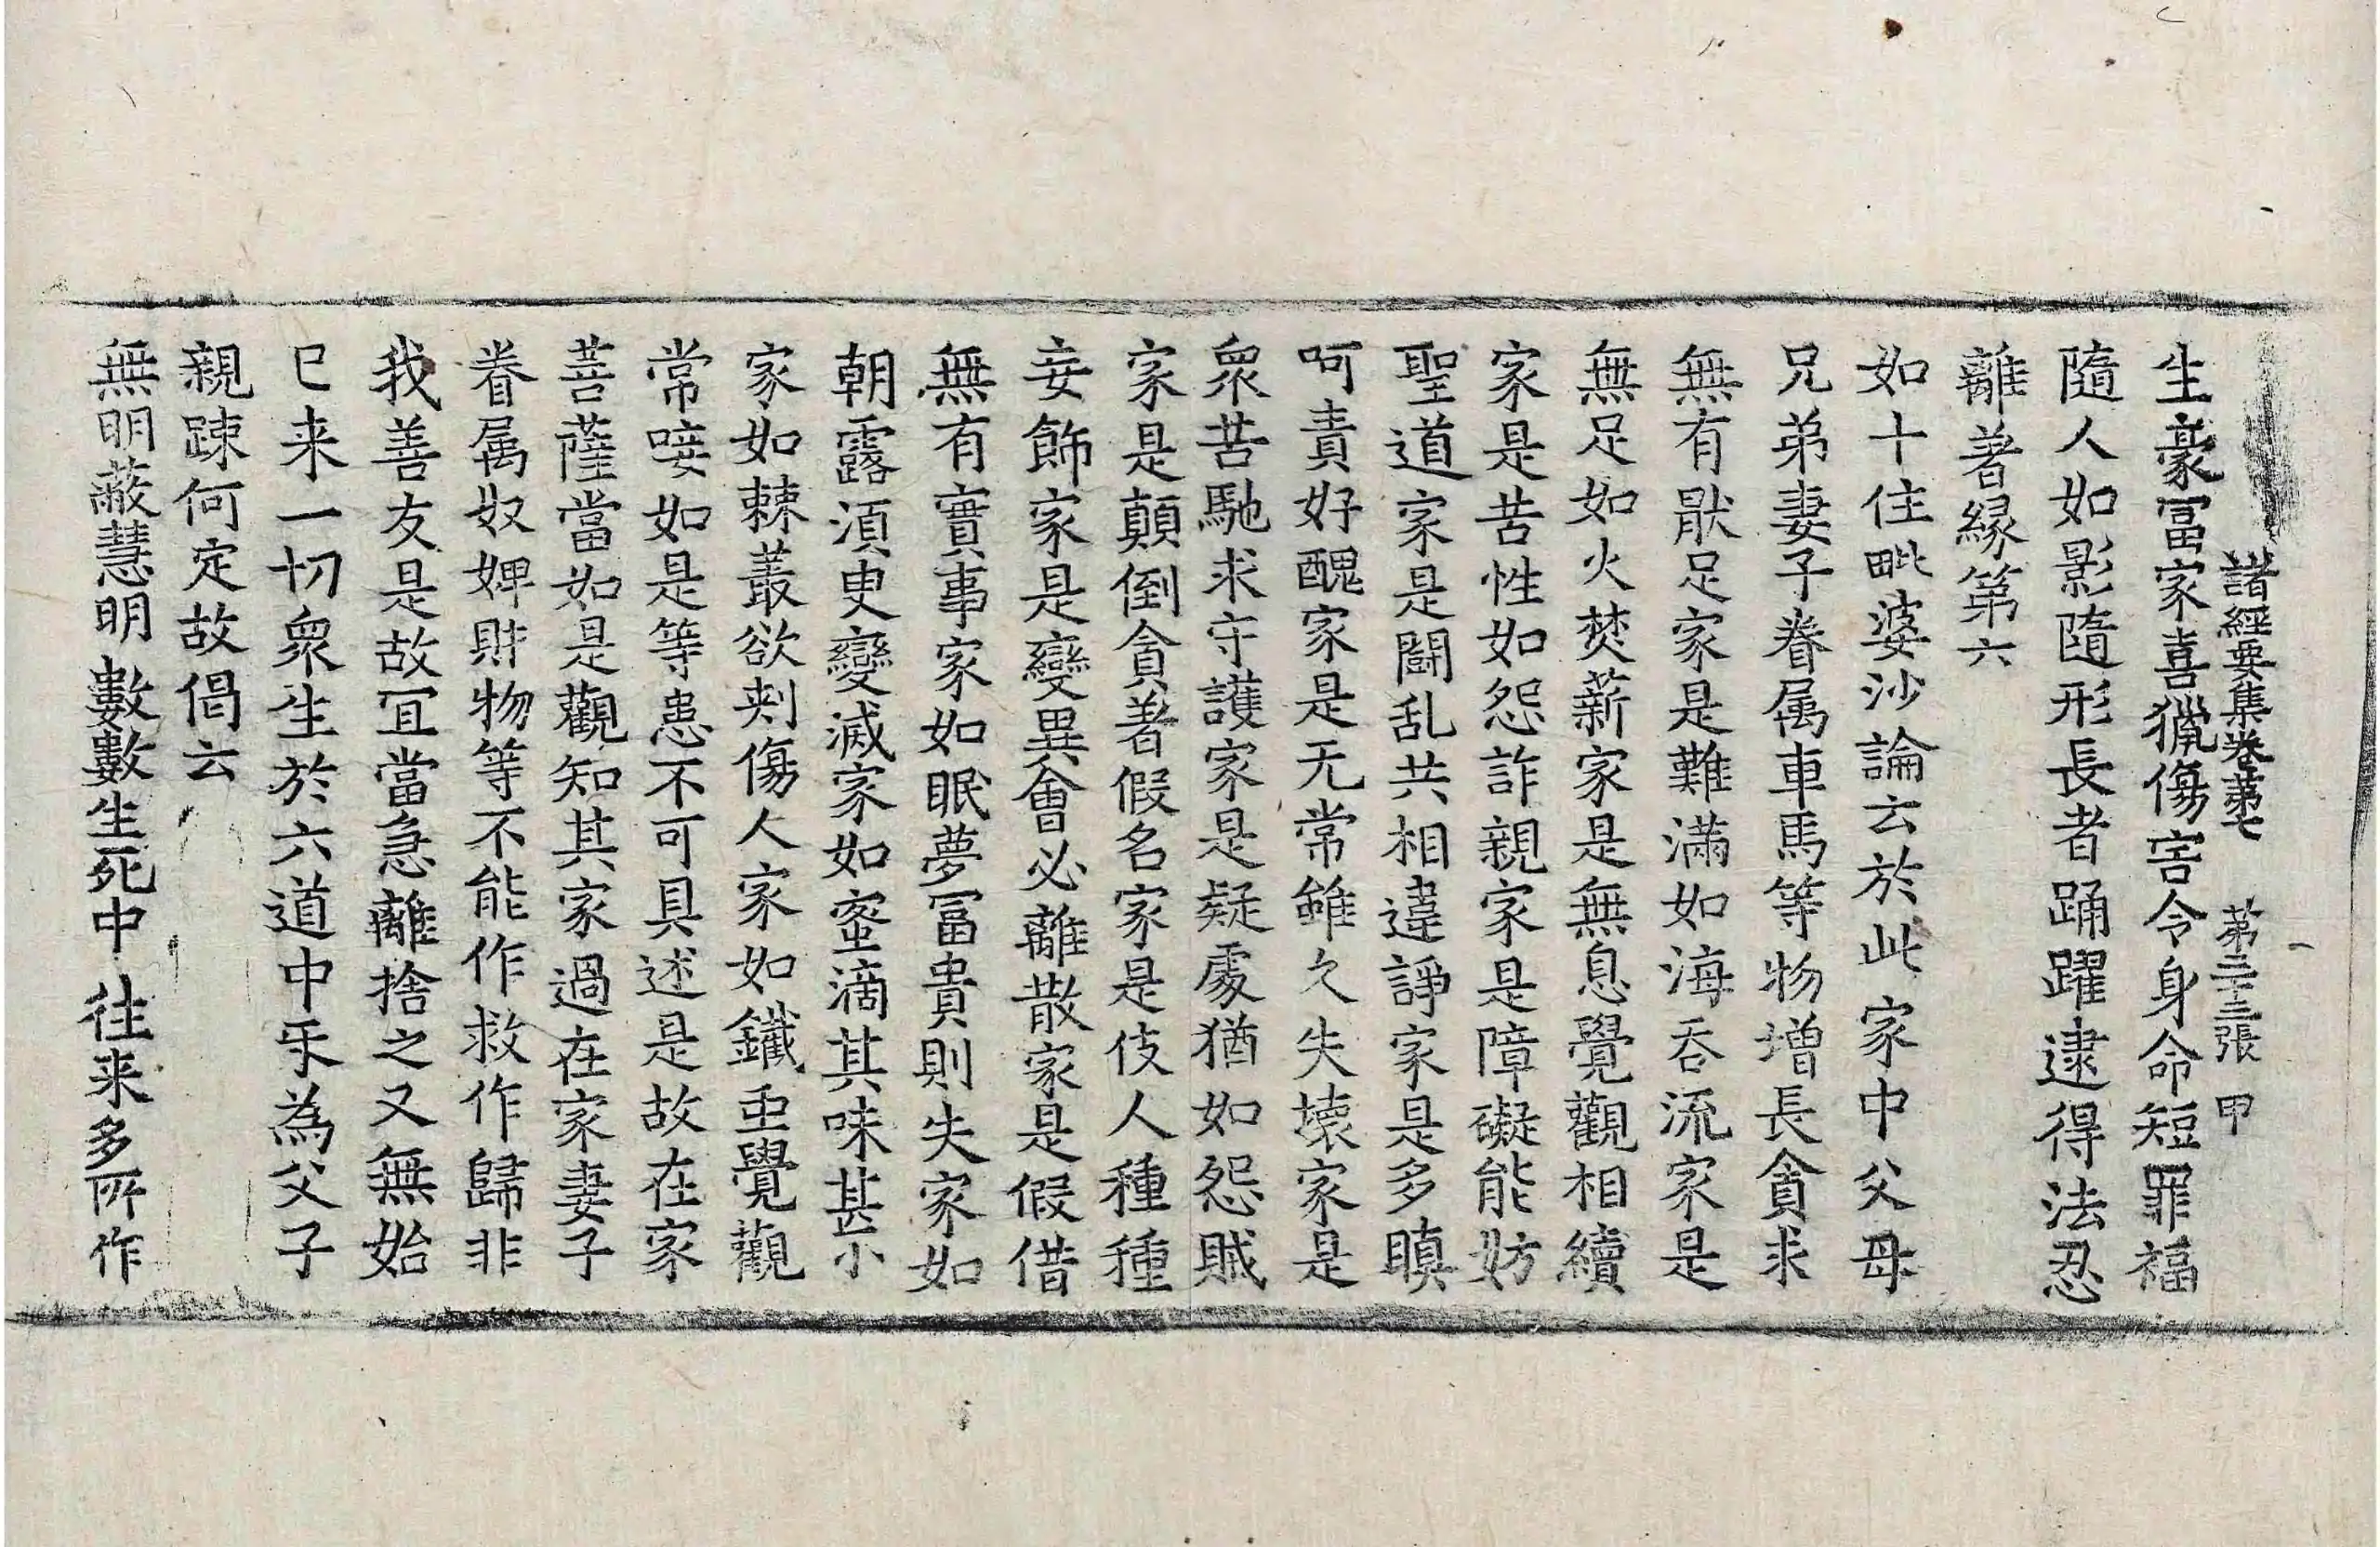 諸經要集卷第七 第二十三張 甲
生豪冨家喜獵傷害令身命短罪福
隨人如影隨形長者踊躍逮得法忍
離著緣第六
如十住毗婆沙論云於此家中父母
兄弟妻子眷属車馬等物增長貪求
無有猒足家是難滿如海吞流家是
無足如火焚薪家是無息覺觀相續
家是苦性如怨詐親家是障礙能妨
聖道家是鬪乱共相違諍家是多瞋
呵責好醜家是无常雖久失壞家是
衆苦馳求守護家是疑處猶如怨賊
家是顛倒貪著假名家是伎人種種
妄飾家是變異會必離散家是假借
無有實事家如眠夢冨貴則失家如
朝露須臾變滅家如蜜滴其味甚小
家如棘叢欲刾傷人家如鐵䖝覺觀
常唼如是等患不可具述是故在家
菩薩當如是觀知其家過在家妻子
眷属奴婢財物等不能作救作歸非
我善友是故冝當急離捨之又無始
已来一切衆生於六道中㸦為父子
親踈何定故偈云
無明蔽慧明 數數生死中 往来多所作